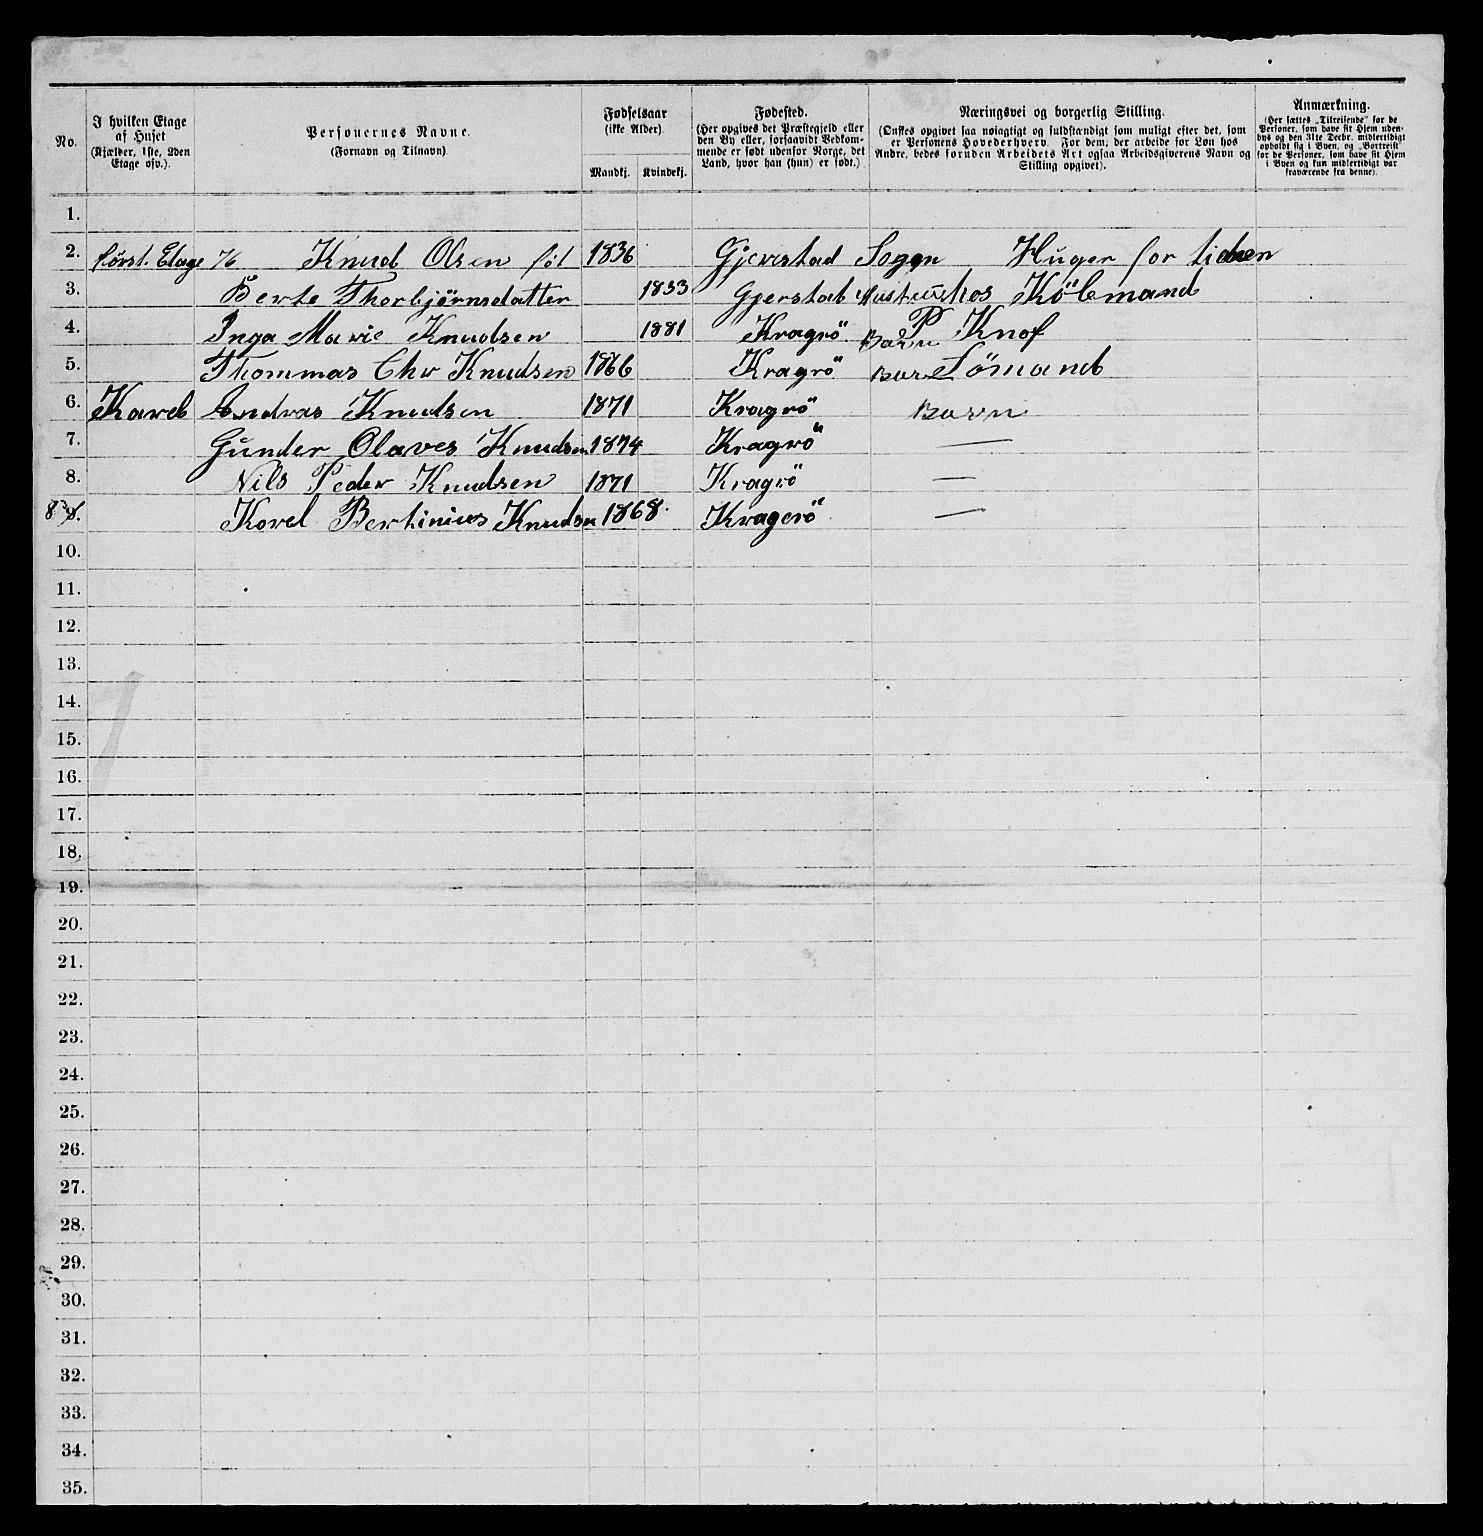 No.
I hvilken Etage af Huset (Kjælder, 1ste, 2den Etage osv.)
Personernes Navne. (Fornavn og Tilnavn)
Fødselsaar (ikke Alder)
Mandkj. Kvindekj.
Fødested. (Her opgives det Præstegjeld eller den By eller, forsaavidt Vedkommende er født udenfor Norge, det Land, hvor han (hun) er født.)
Næringsvei og borgerlig Stilling. (Ønskes opgivet saa nøiagtigt og fuldstændigt som muligt efter det, som er Personens Hovederhverv. For dem, der arbeide for Løn hos Andre, bedes foruden Arbeidets Art ogsaa Arbeidsgiverens Navn og Stilling opgivet).
Anmærkning. (Her sættes „Tilreisende" for de Personer, som have sit Hjem udenbys og den 31te Decbr. midlertidigt opholdt sig i Byen, og „Bortreist" for de Personer, som have sit Hjem i Byen og kun midlertidigt var fraværende fra denne).
1.
2. først. Etage Knud Olsen föt 1836 Gjerrestad Sogen Huger for tiden
3. Berte Thorbjörnsdatter 1833 Gjerstad hos Köbmand
4. Inga Marie Knudsen 1881 Kragrö Barn P Knof
5. Thommas Chr Knudsen 1866 Kragrö Barn Sömand
6. Karel Andras Knudsen 1871 Kragrö Barn
7. Gunder Olaves Knudsen 1874 Kragrö —
8. Nils Peder Knudsen 1871 Kragrö —
8 Korel Bertinius Knudsn 1868. Kragerö —
10.
11.
12.
13.
14.
15.
16.
17.
18.
19.
20.
21.
22.
23.
24.
25.
26.
27.
28.
29.
30.
31.
32.
33.
34.
35.